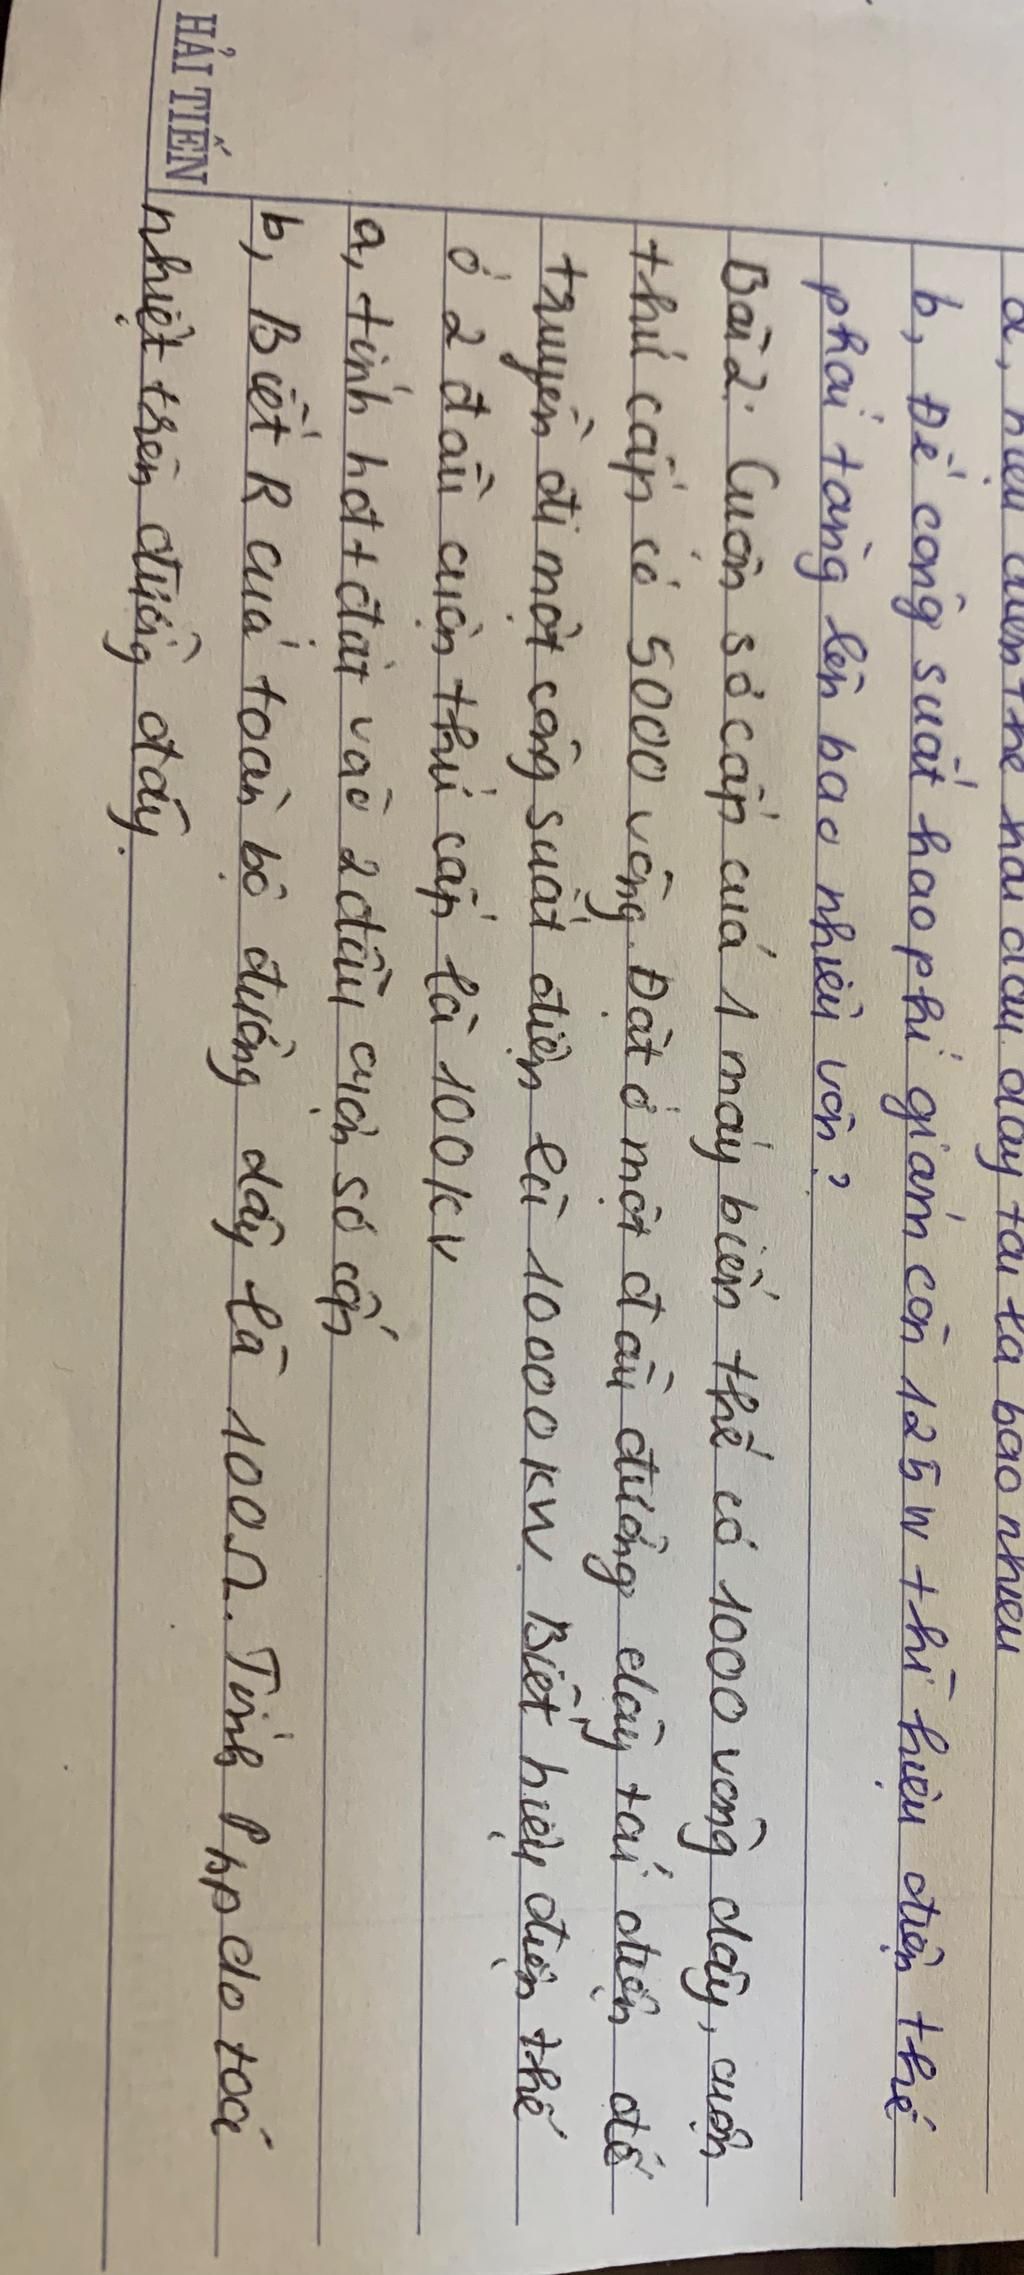 a, hiệu điện thế hai đầu dây tải là bao nhiêu
b, Để công suất hao phí giảm còn 125W thì hiệu điện thế
phải tăng lên bao nhiêu vôn?
Bài 2: Cuộn sơ cấp của 1 máy biến thế có 1000 vòng dây, cuộn
thứ cấp có 5000 vòng. Đặt ở một đầu đường dây tải điện để
truyền đi một công suất điện là 10000KW. Biết hiệu điện thế
ở 2 đầu cuộn thứ cấp là 100KV
a, tính hđt đặt vào 2 đầu cuộn sơ cấp
b, Biết R của toàn bộ đường dây là 100Ω. Tính Php do toả
nhiệt trên đường dây.
HẢI TIẾN